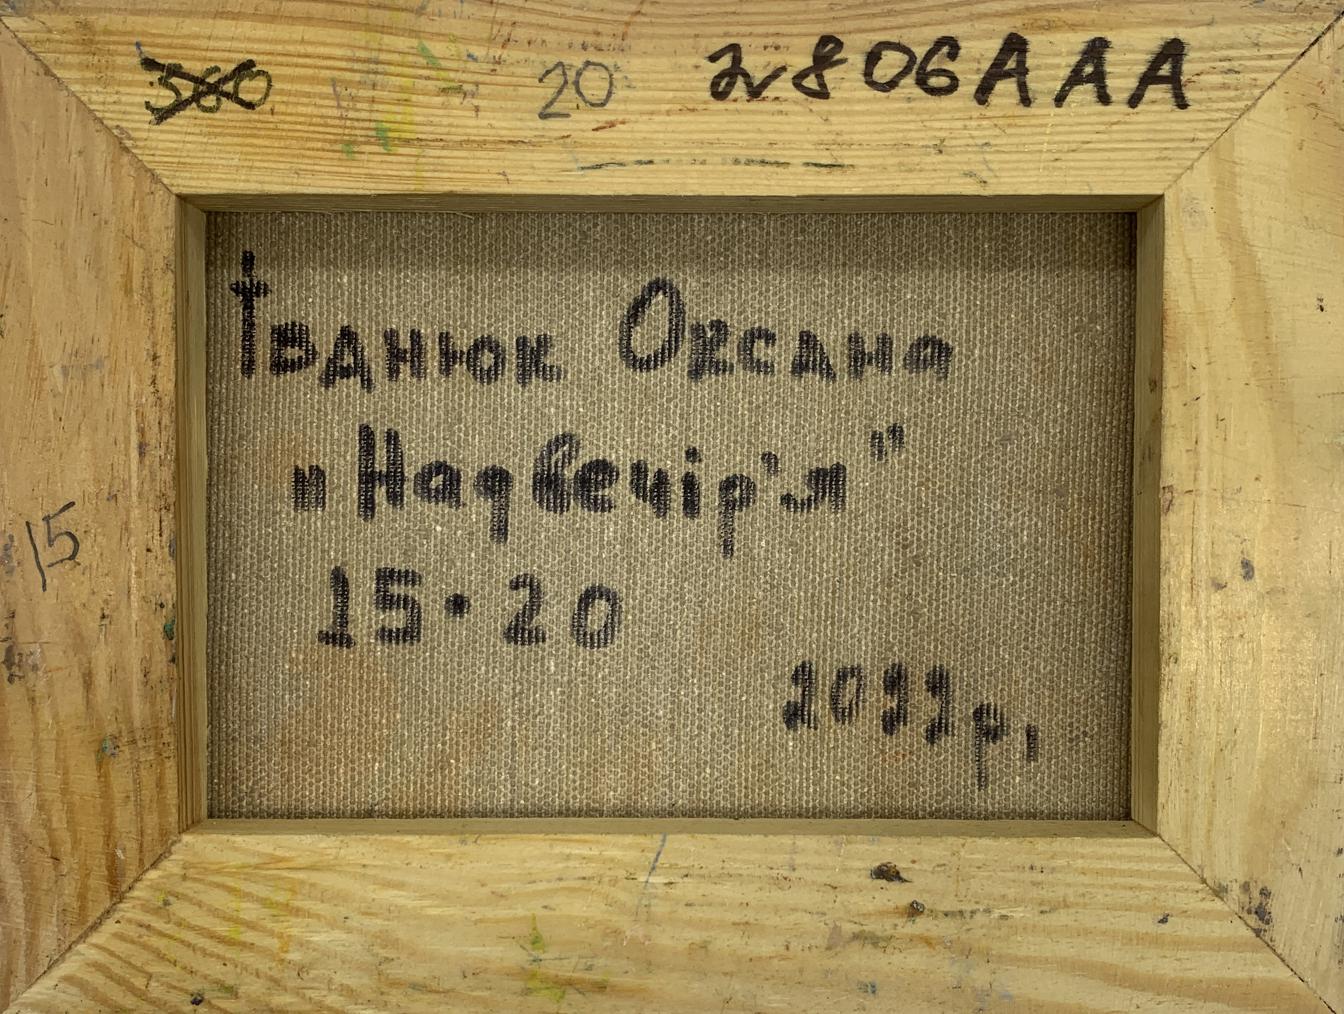 360 20 2806AAA
Іванюк Оксана
„Надвечір'я"
15
15·20
2022р,